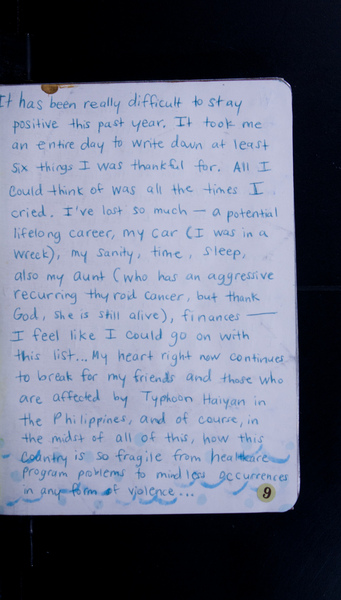 It has been really difficult to stay
positive this past year. It took me
an entire day to write down at least
six things I was thankful for. All I
could think of was all the times I
cried. I've lost so much — a potential
lifelong career, my car (I was in a
wreck), my sanity, time, sleep,
also my aunt (who has an aggressive
recurring thyroid cancer, but thank
God, she is still alive), finances —
I feel like I could go on with
this list... My heart right now continues
to break for my friends and those who
are affected by Typhoon Haiyan in
the Philippines, and of course, in
the midst of all of this, how this
country is so fragile from healthcare
program problems to mindless occurrences
in any form of violence...
9